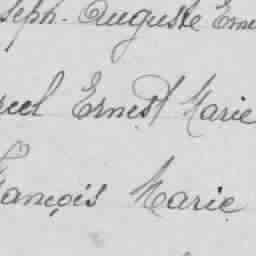 seph. Auguste Eme
rcel Ernest Marie
rançois Marie